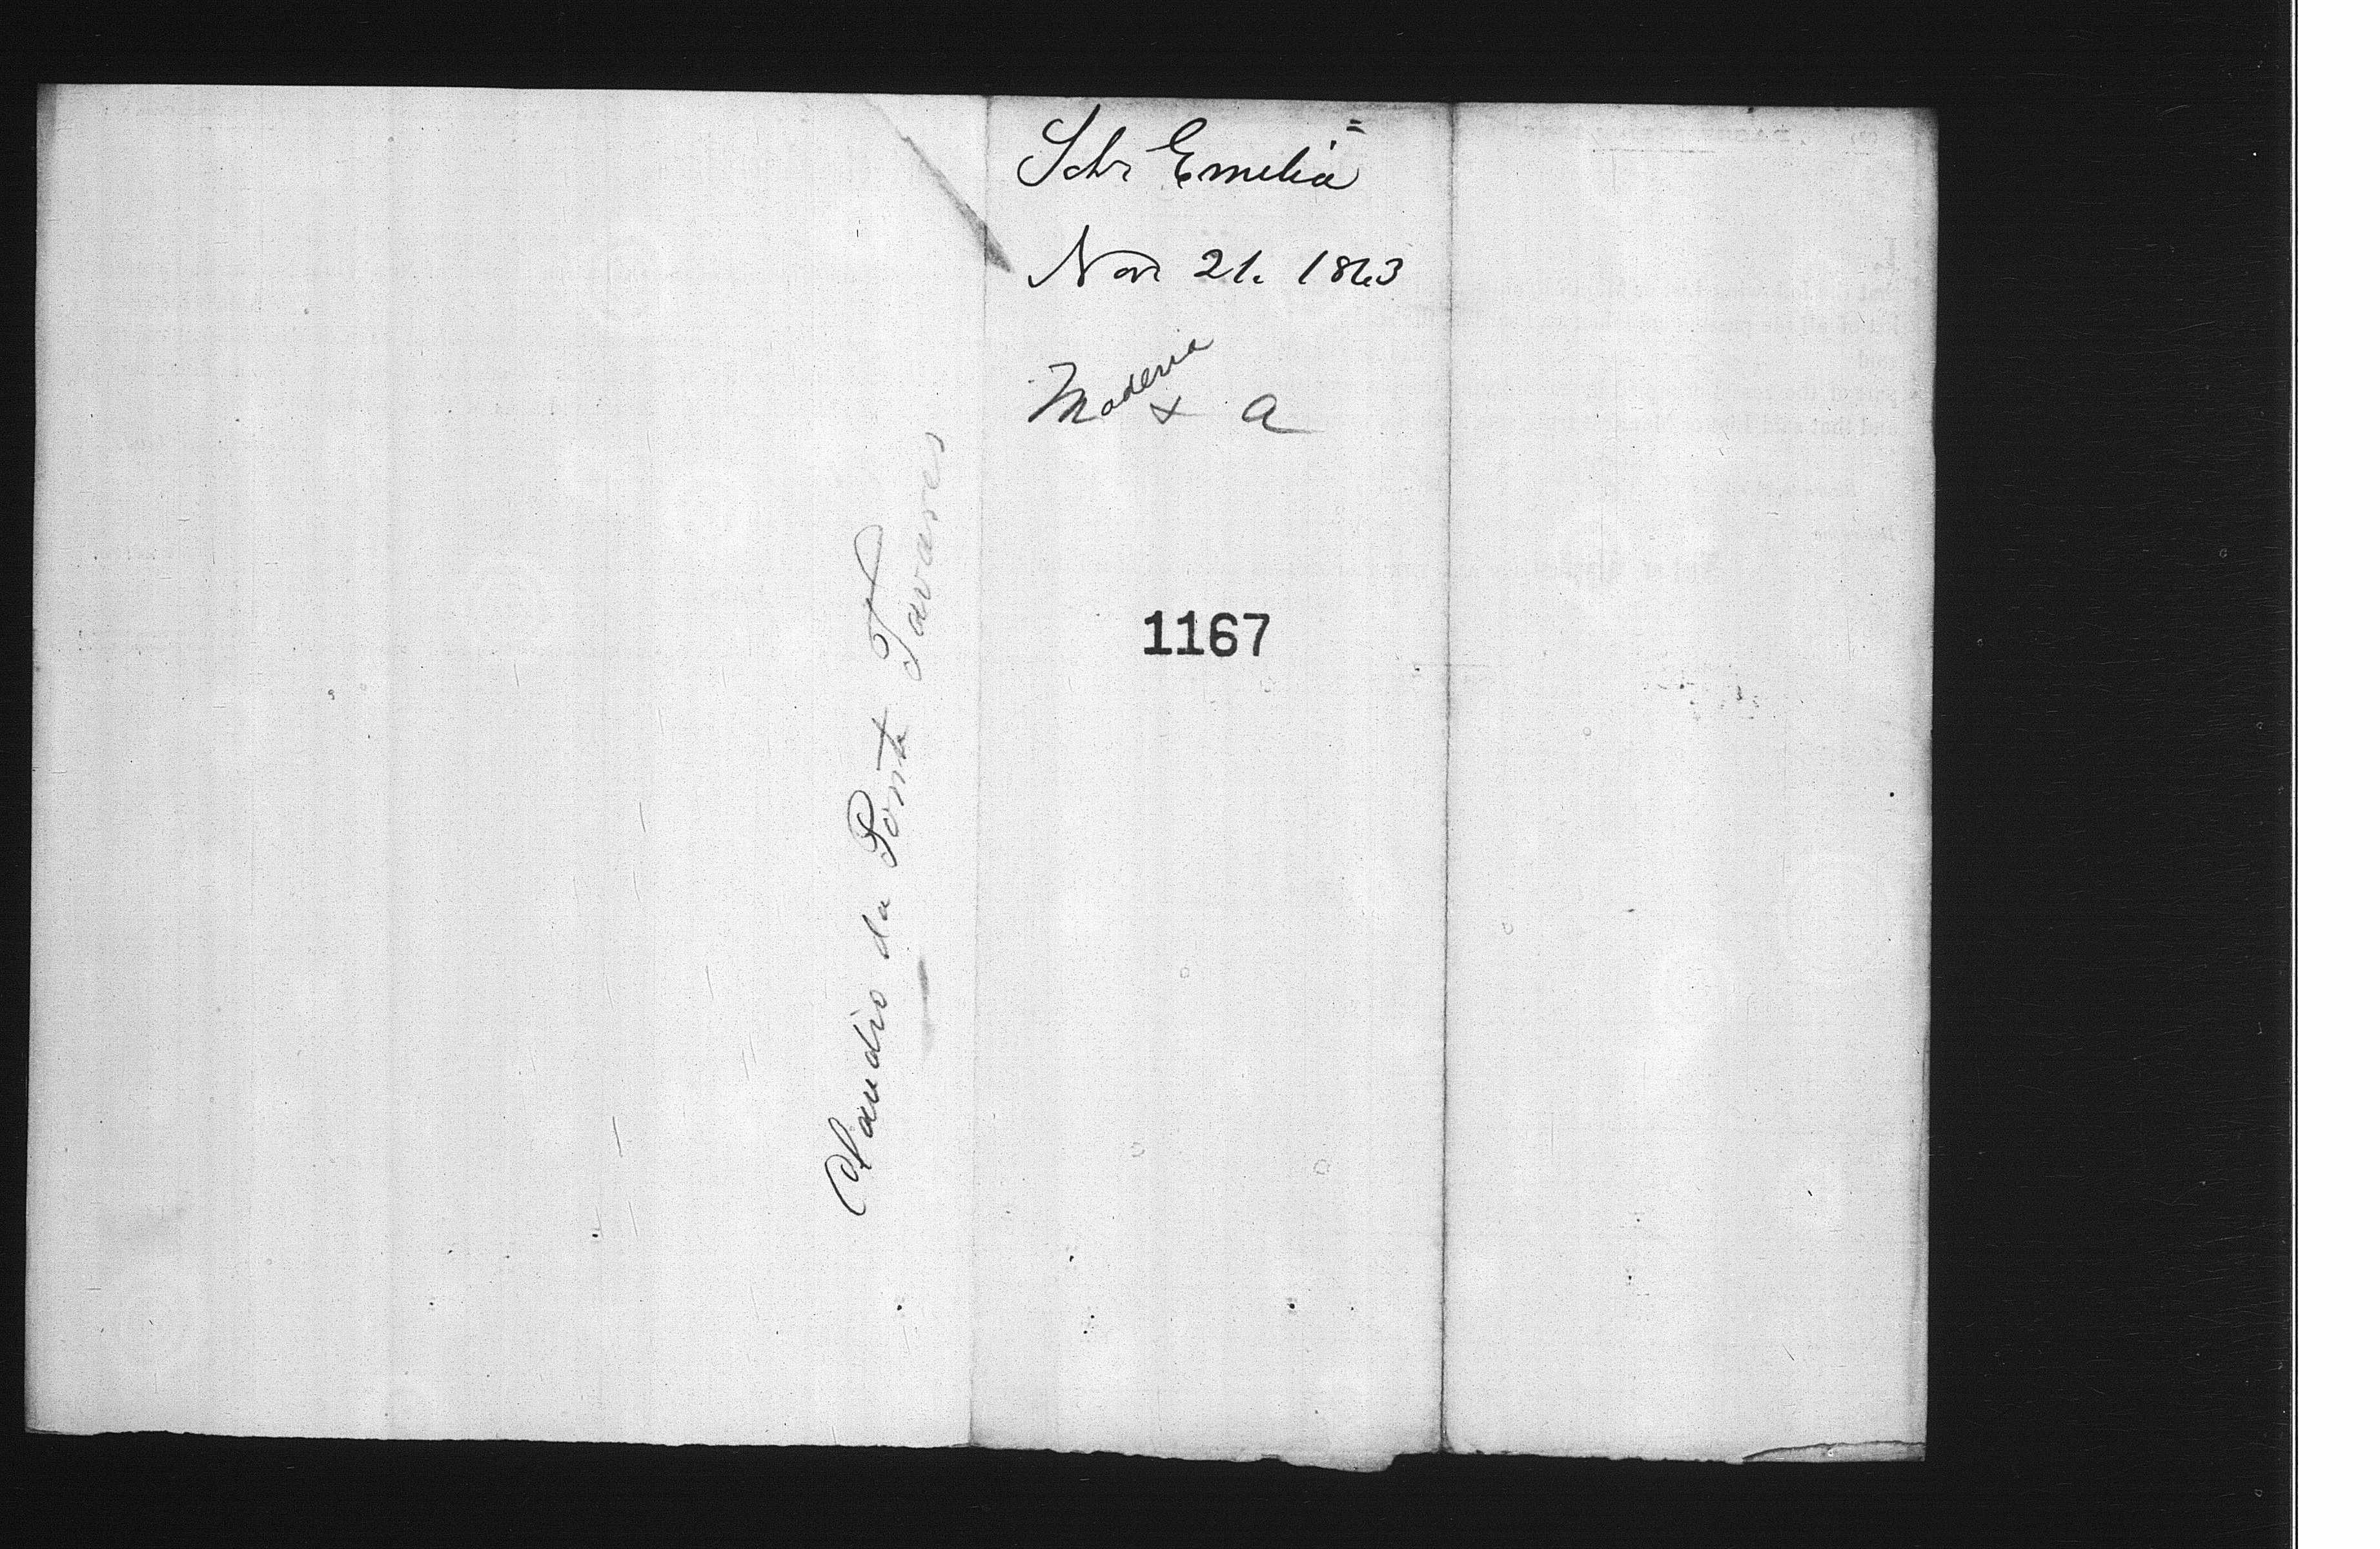 Schr Emelia
Nov 21. 1863
Maderia
x a
1167
Claudio da Ponte Tavares